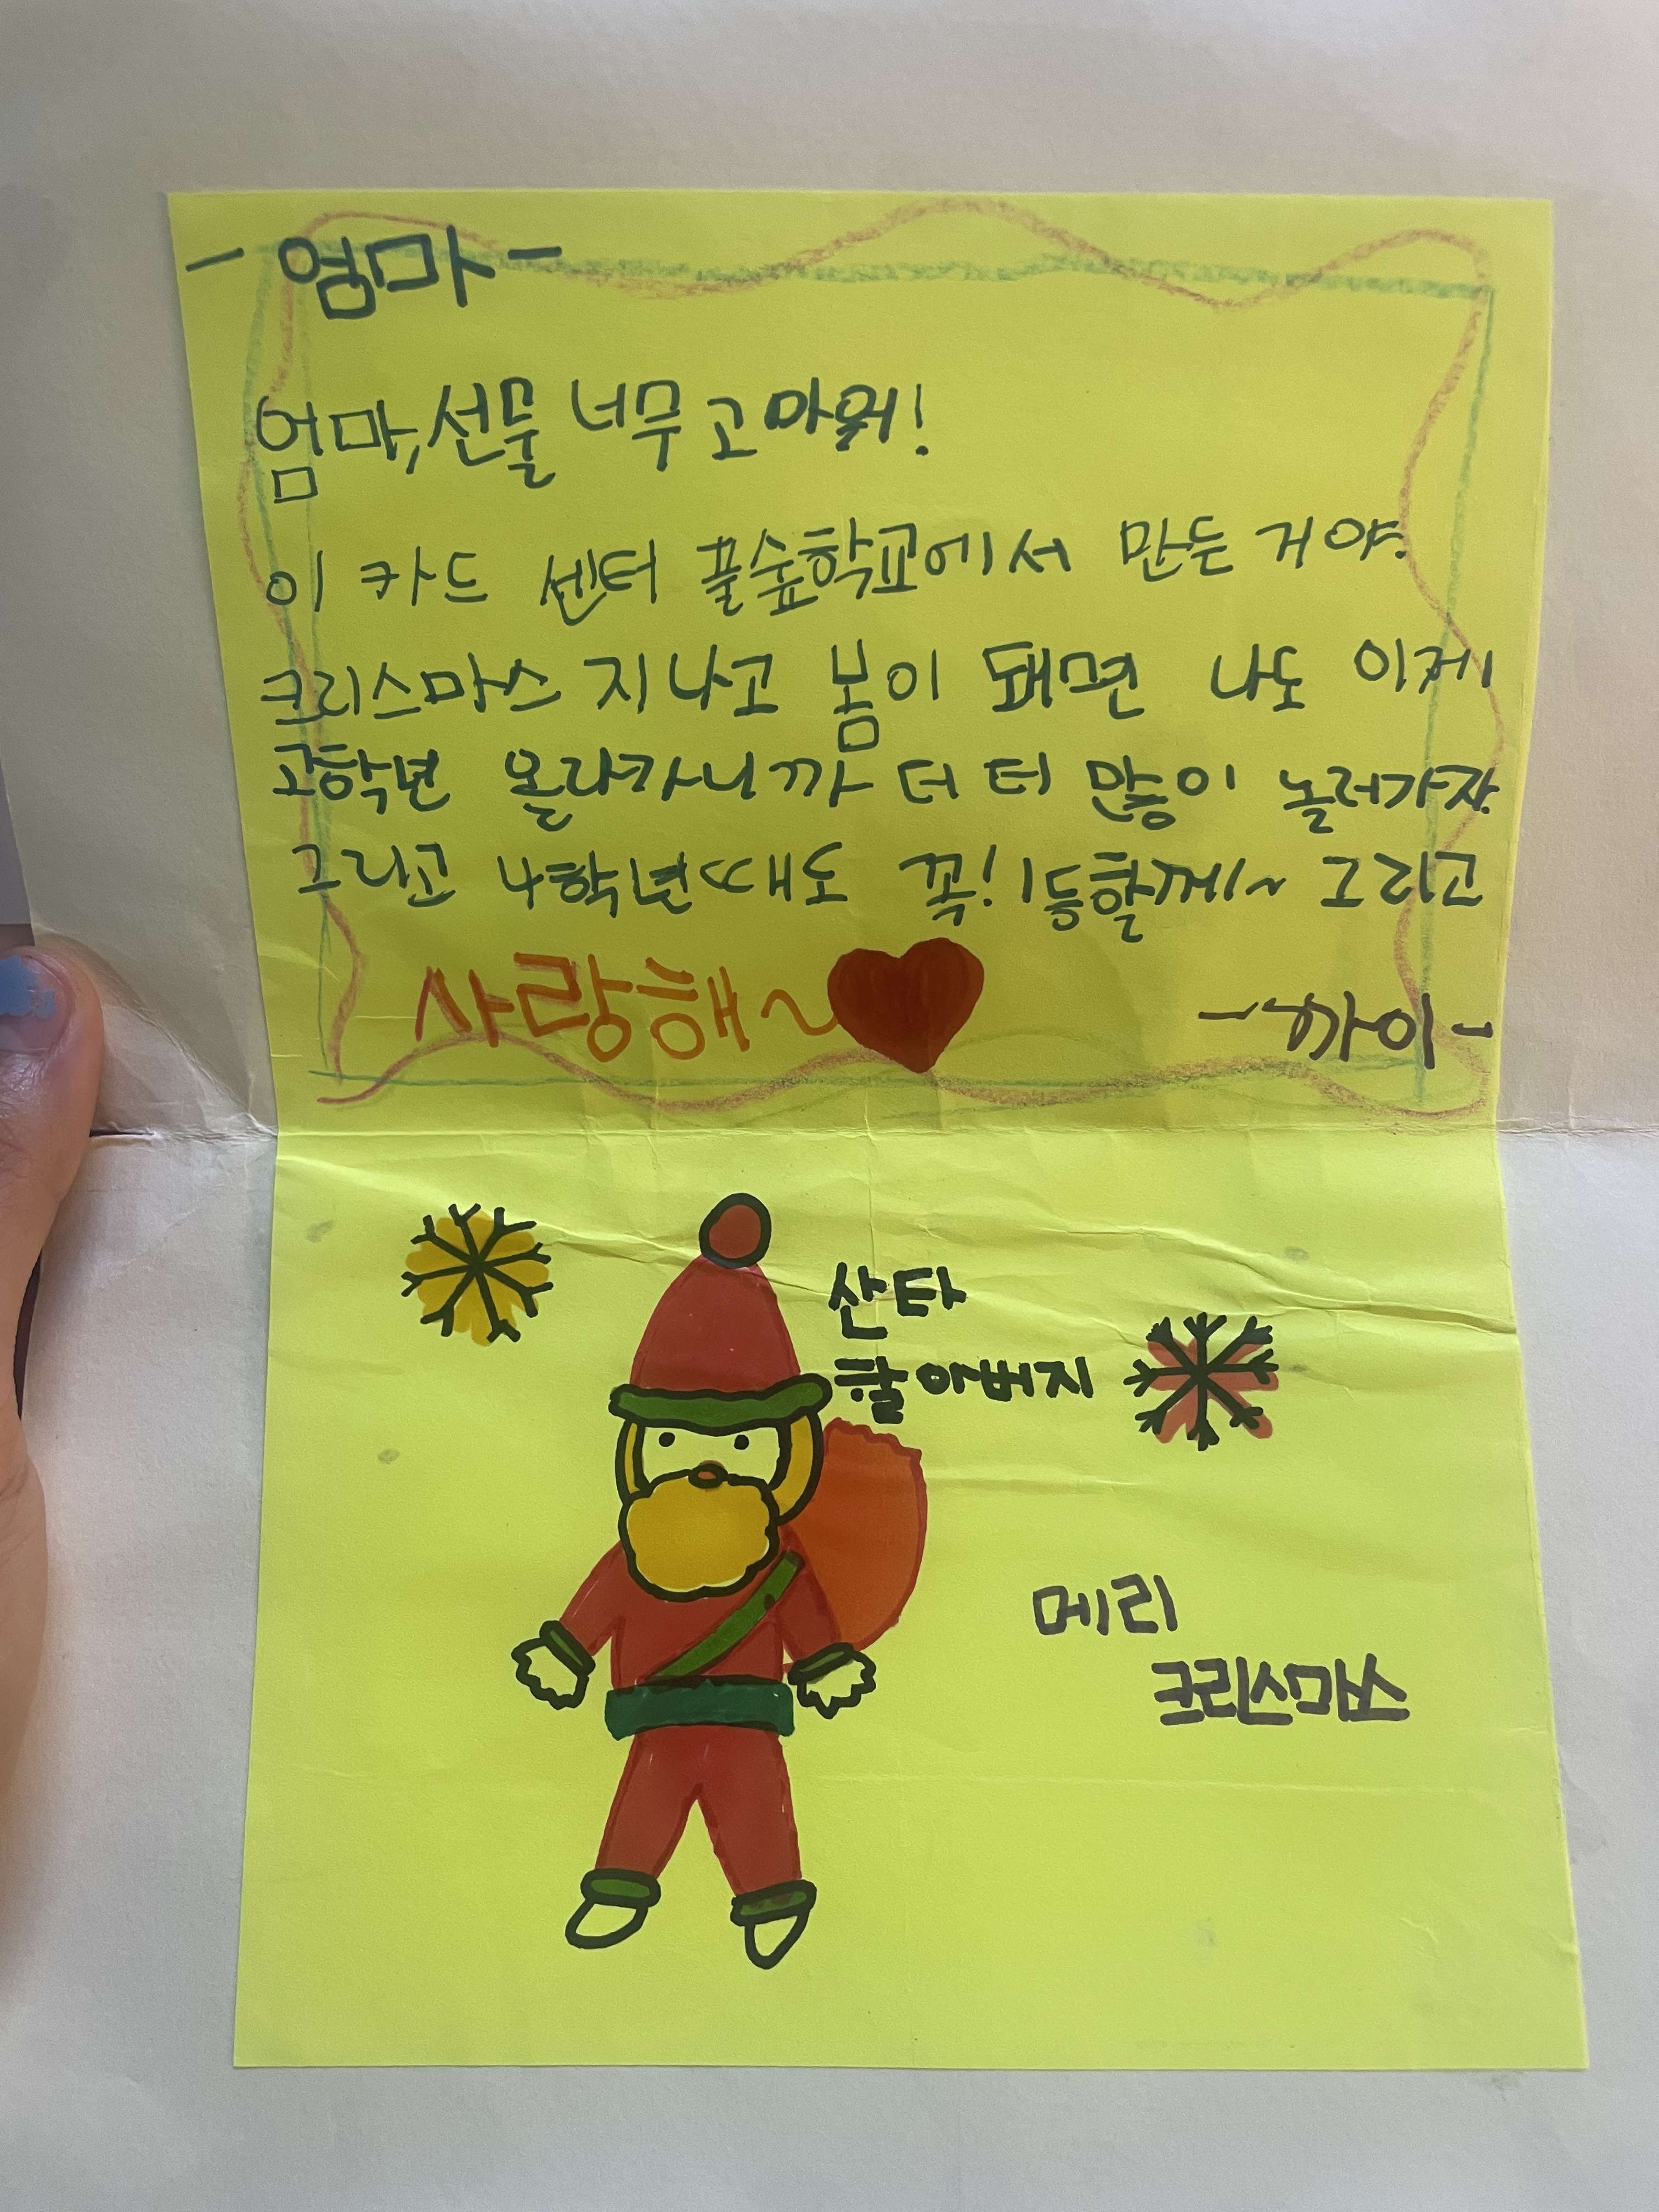 - 엄마 -
엄마, 선물 너무 고마워!
이 카드 센터 풀숲학교에서 만든 거야.
크리스마스 지나고 봄이 돼면 나도 이제
고학년 올라가니까 더 더 많이 놀러가자.
그리고 4학년때도 꼭! 1등할께~ 그리고
사랑해~
- 까이 -
산타
할아버지
메리
크리스마스